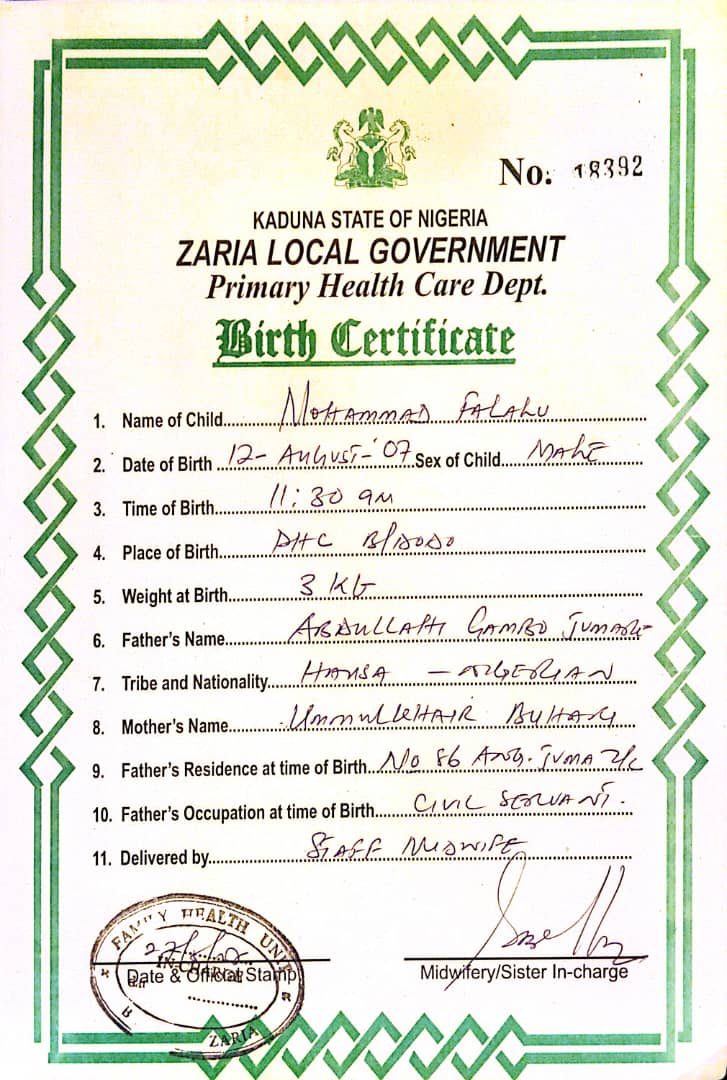 No: 18392
KADUNA STATE OF NIGERIA
ZARIA LOCAL GOVERNMENT
Primary Health Care Dept.
Birth Certificate
1. Name of Child MOHAMMAD FALALU
2. Date of Birth 12- AUGUST-'07 Sex of Child MALE
3. Time of Birth 11:30 am
4. Place of Birth B/DODO
5. Weight at Birth 3 KG
6. Father's Name ABDULLAHI GAMBO JUMARE
7. Tribe and Nationality HAUSA - NIGERIAN
8. Mother's Name UMMULKHAIR BUHARI
9. Father's Residence at time of Birth NO 86 ANG. JUMA Z/C
10. Father's Occupation at time of Birth CIVIL SERVANT.
11. Delivered by STAFF MIDWIFE
FAMILY HEALTH UNIT
IN-CHARGE
Date & Official Stamp
Midwifery/Sister In-charge
ZARIA